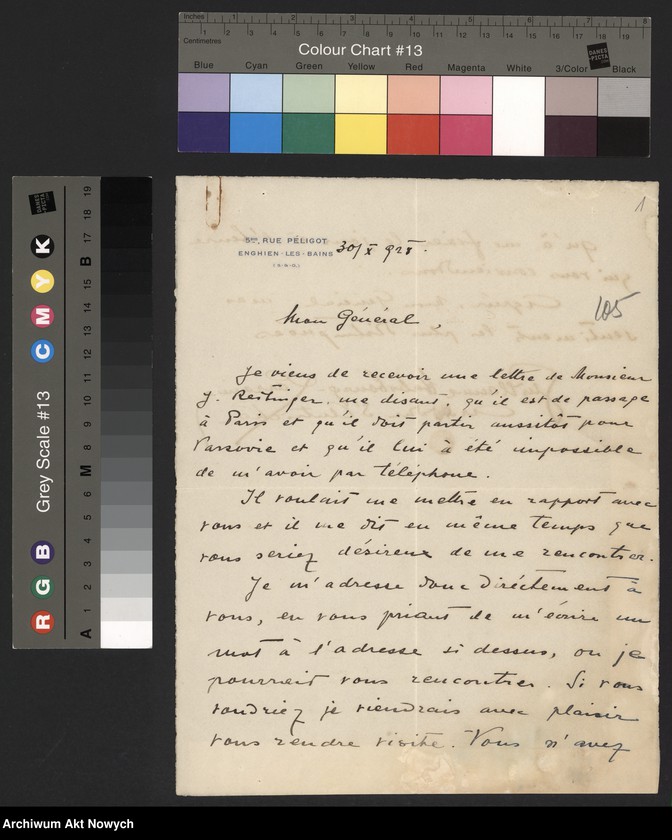 Inches 1 2 3 4 5 6 7 8
Centimetres 1 2 3 4 5 6 7 8 9 10 11 12 13 14 15 16 17 18 19
Colour Chart #13
DAMES PICTA .com
Blue Cyan Green Yellow Red Magenta White 3/Color Black
Grey Scale #13
DAMES PICTA .com
R G B C M Y K
A 1 2 3 4 5 6 M 8 9 10 11 12 13 14 15 B 17 18 19
1
RUE PÉLIGOT
ENGHIEN-LES-BAINS
(S.-&-O.)
30/X
105
Mon Général,
Je viens de recevoir une lettre de Monsieur
J. Retinger, me disant, qu'il est de passage
à Paris et qu'il doit partir aussitôt pour
Varsovie et qu'il lui a été impossible
de m'avoir par téléphone.
Il voulait me mettre en rapport avec
vous et il me dit en même temps que
vous seriez désireux de me rencontrer.
Je m'adresse donc diréctement à
vous, en vous priant de m'écrire un
mot à l'adresse si dessus, ou je
pourrait vous rencontrer. Si vous
voudriez je viendrais avec plaisir
vous rendre visite. Vous n'avez
Archiwum Akt Nowych